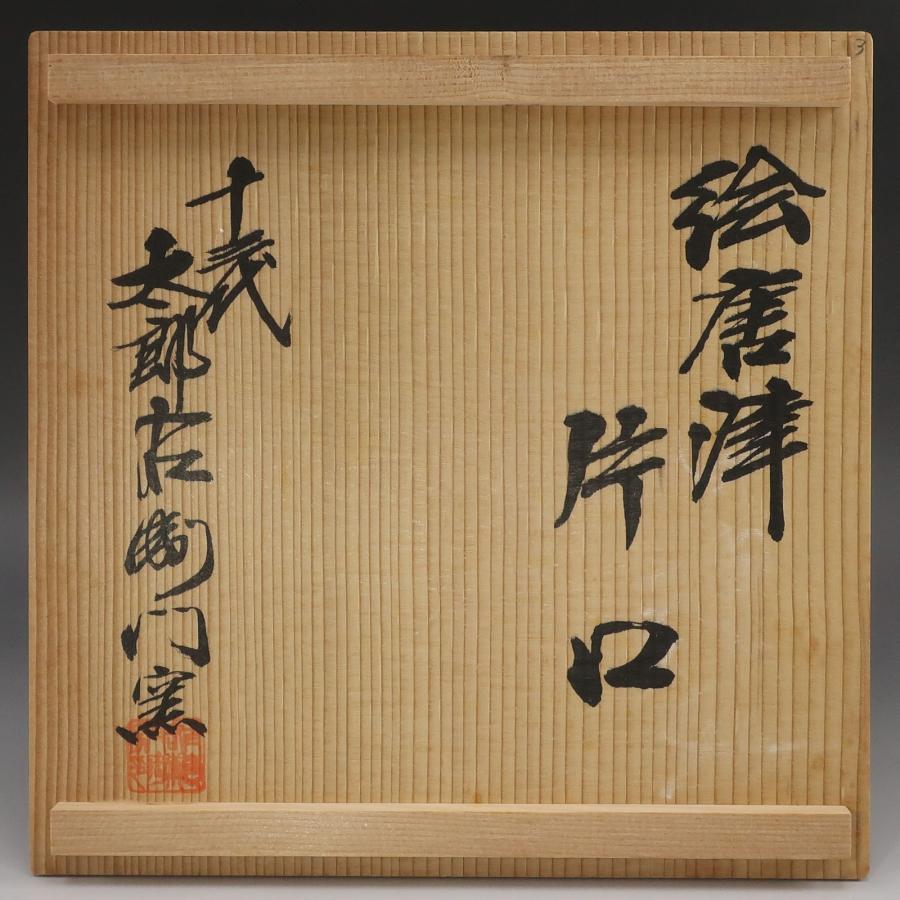 絵唐津
片口
十三代
太郎右衛門窯
3